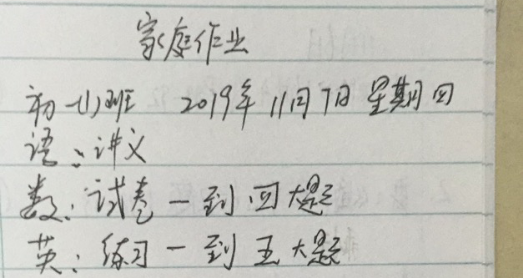 家庭作业
初一(1)班 2019年11月7日 星期四
语:讲义
数:试卷一到四大题
英:练习一到五大题